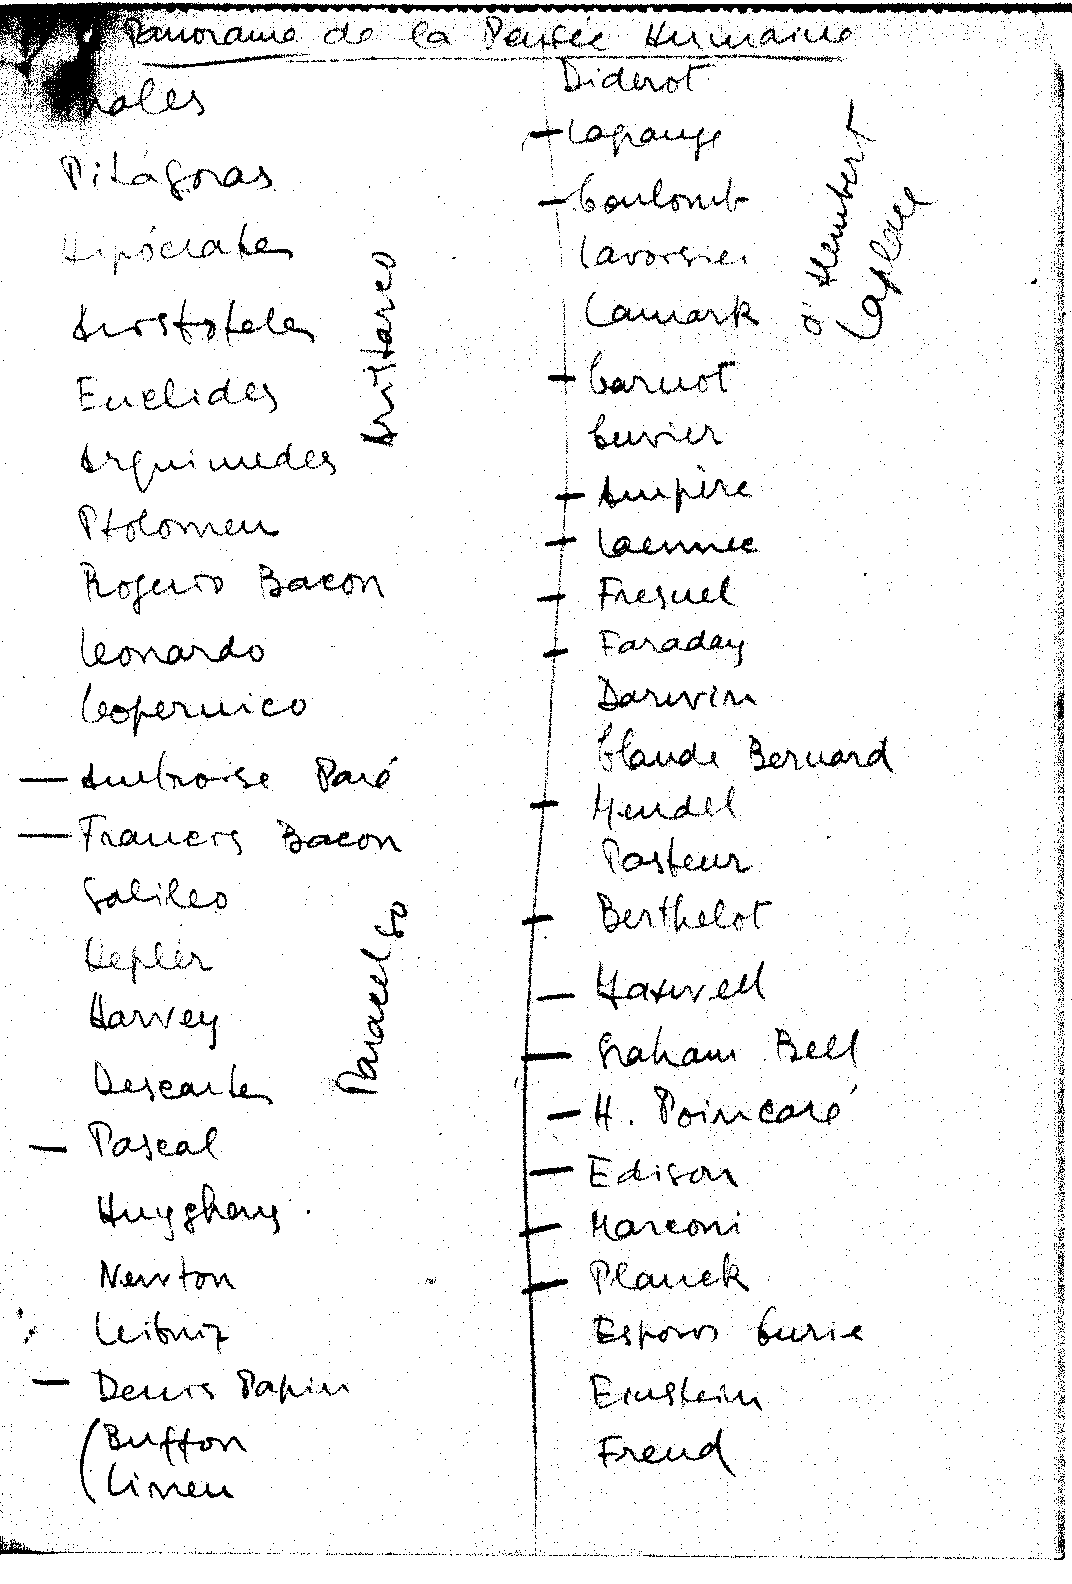 Panorama de la Pensée Humaine
Thales
Pitágoras
Hipócrates
Aristoteles
Euclides
Arquimedes
Ptolomeu
Rogerio Bacon
Leonardo
Copernico
Ambroise Paré
Francis Bacon
Galileo
Kepler
Harvey
Descartes
Pascal
Huyghens
Newton
Leibniz
Denis Papin
Buffon
Lineu
Aristarco
Paracelso
Diderot
Lagrange
Coulomb
Lavoisier
Lamark
Carnot
Cuvier
Ampère
Laennec
Fresnel
Faraday
Darwin
Claude Bernard
Mendel
Pasteur
Berthelot
Maxwell
Graham Bell
H. Poincaré
Edison
Marconi
Planck
Esposos Curie
Einstein
Freud
d'Alembert
Laplace